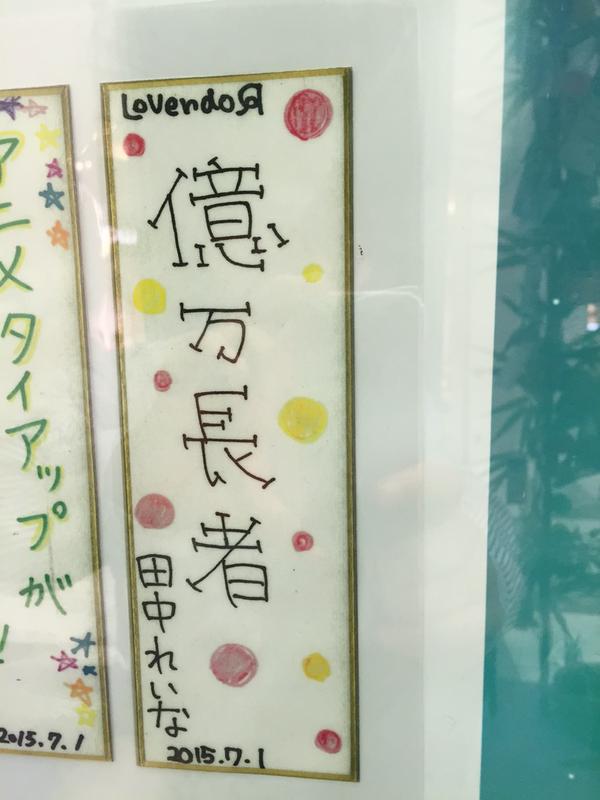 LoVendoЯ
億万長者
田中れいな
2015.7.1
アニメタイアップが
2015.7.1